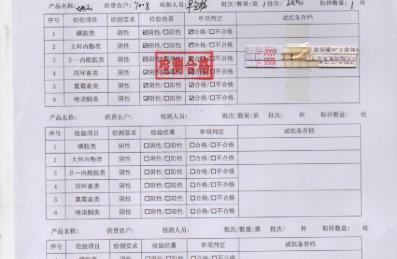 产品名称: 供货农户: 检测人员: 批次/数量:第1批次/ 取样数量:1 枚
序号 检验项目 检测要求 检验结果 单项判定 试纸条存档
1 磺胺类 阴性 ☑阴性/☐阳性 ☑合格/☐不合格
2 大环内酯类 阴性 ☑阴性/☐阳性 ☑合格/☐不合格
3 β一内酰胺类 阴性 ☑阴性/☐阳性 ☑合格/☐不合格
4 四环素类 阴性 ☑阴性/☐阳性 ☑合格/☐不合格
5 氯霉素类 阴性 ☑阴性/☐阳性 ☑合格/☐不合格
6 喹诺酮类 阴性 ☑阴性/☐阳性 ☑合格/☐不合格
检测合格
产品名称: 供货农户: 检测人员: 批次/数量:第 批次/ 枚 取样数量: 枚
序号 检验项目 检测要求 检验结果 单项判定 试纸条存档
1 磺胺类 阴性 ☐阴性/☐阳性 ☐合格/☐不合格
2 大环内酯类 阴性 ☐阴性/☐阳性 ☐合格/☐不合格
3 β一内酰胺类 阴性 ☐阴性/☐阳性 ☐合格/☐不合格
4 四环素类 阴性 ☐阴性/☐阳性 ☐合格/☐不合格
5 氯霉素类 阴性 ☐阴性/☐阳性 ☐合格/☐不合格
6 喹诺酮类 阴性 ☐阴性/☐阳性 ☐合格/☐不合格
产品名称: 供货农户: 检测人员: 批次/数量:第 批次/ 枚 取样数量: 枚
序号 检验项目 检测要求 检验结果 单项判定 试纸条存档